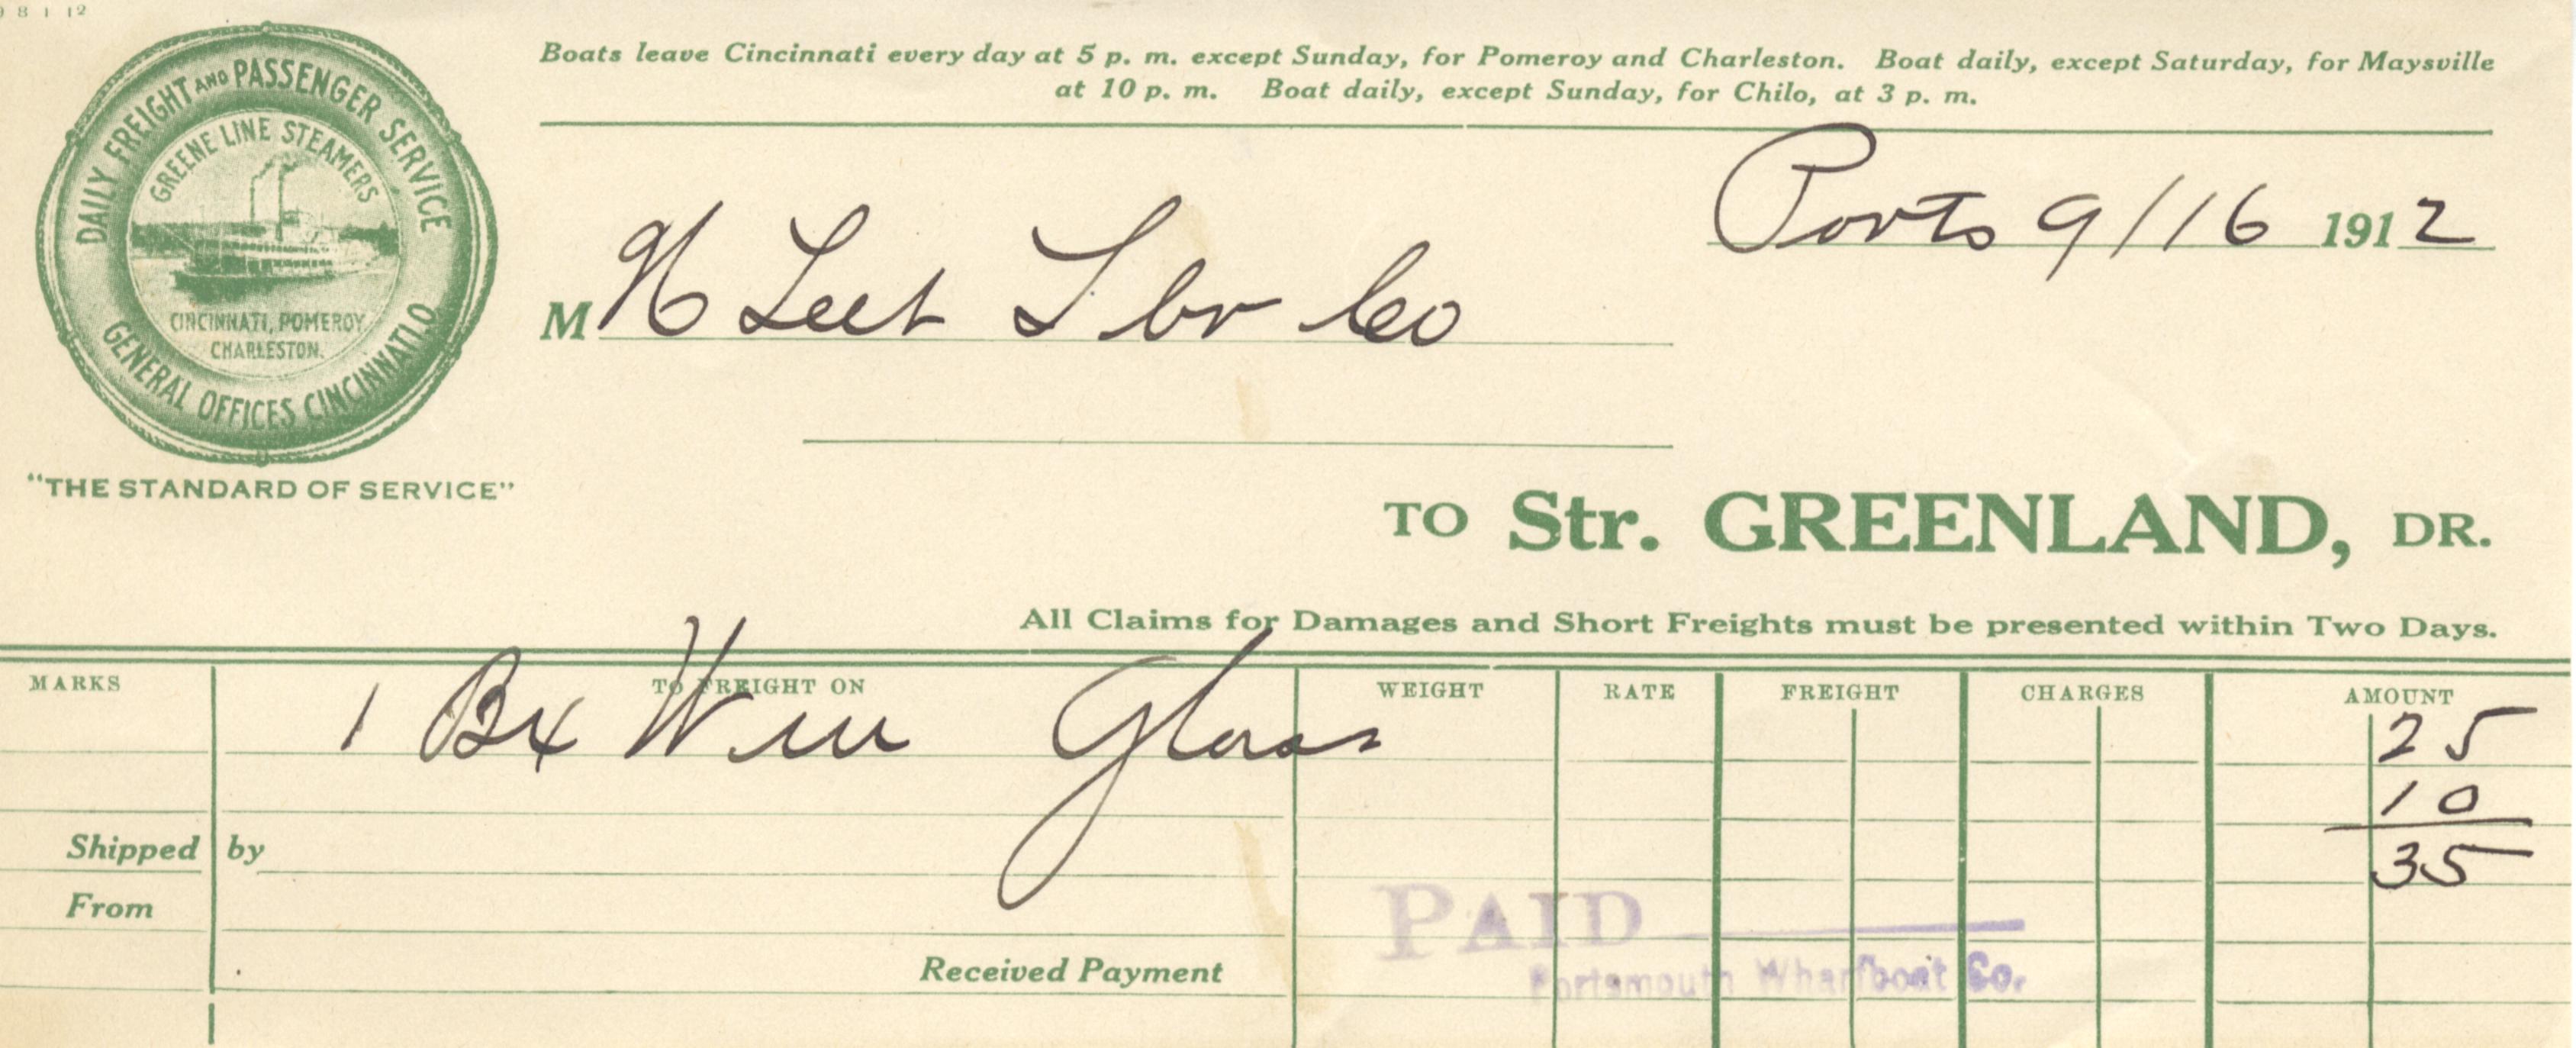 9 8 1 12
Boats leave Cincinnati every day at 5 p. m. except Sunday, for Pomeroy and Charleston. Boat daily, except Saturday, for Maysville
at 10 p. m. Boat daily, except Sunday, for Chilo, at 3 p. m.
DAILY FREIGHT AND PASSENGER SERVICE
GREENE LINE STEAMERS
CINCINNATI, POMEROY
CHARLESTON.
GENERAL OFFICES CINCINNATI, O
"THE STANDARD OF SERVICE"
Ports 9/16 1912
M Leet Lbr Co
TO Str. GREENLAND, DR.
All Claims for Damages and Short Freights must be presented within Two Days.
MARKS TO FREIGHT ON WEIGHT RATE FREIGHT CHARGES AMOUNT
1 Bx Win Glass 25
10
Shipped by 35
From
PAID
Received Payment Portsmouth Wharfboat Co.